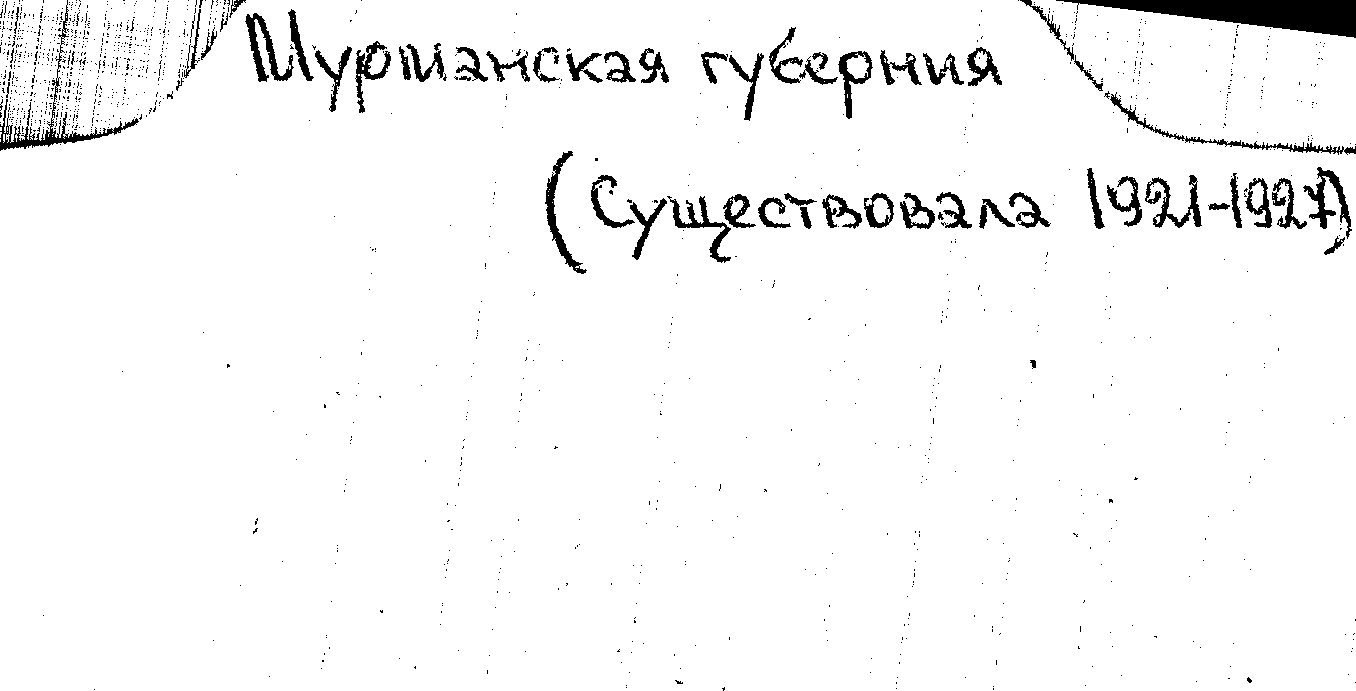 Мурманская губерния
(Существовала 1921-1927)